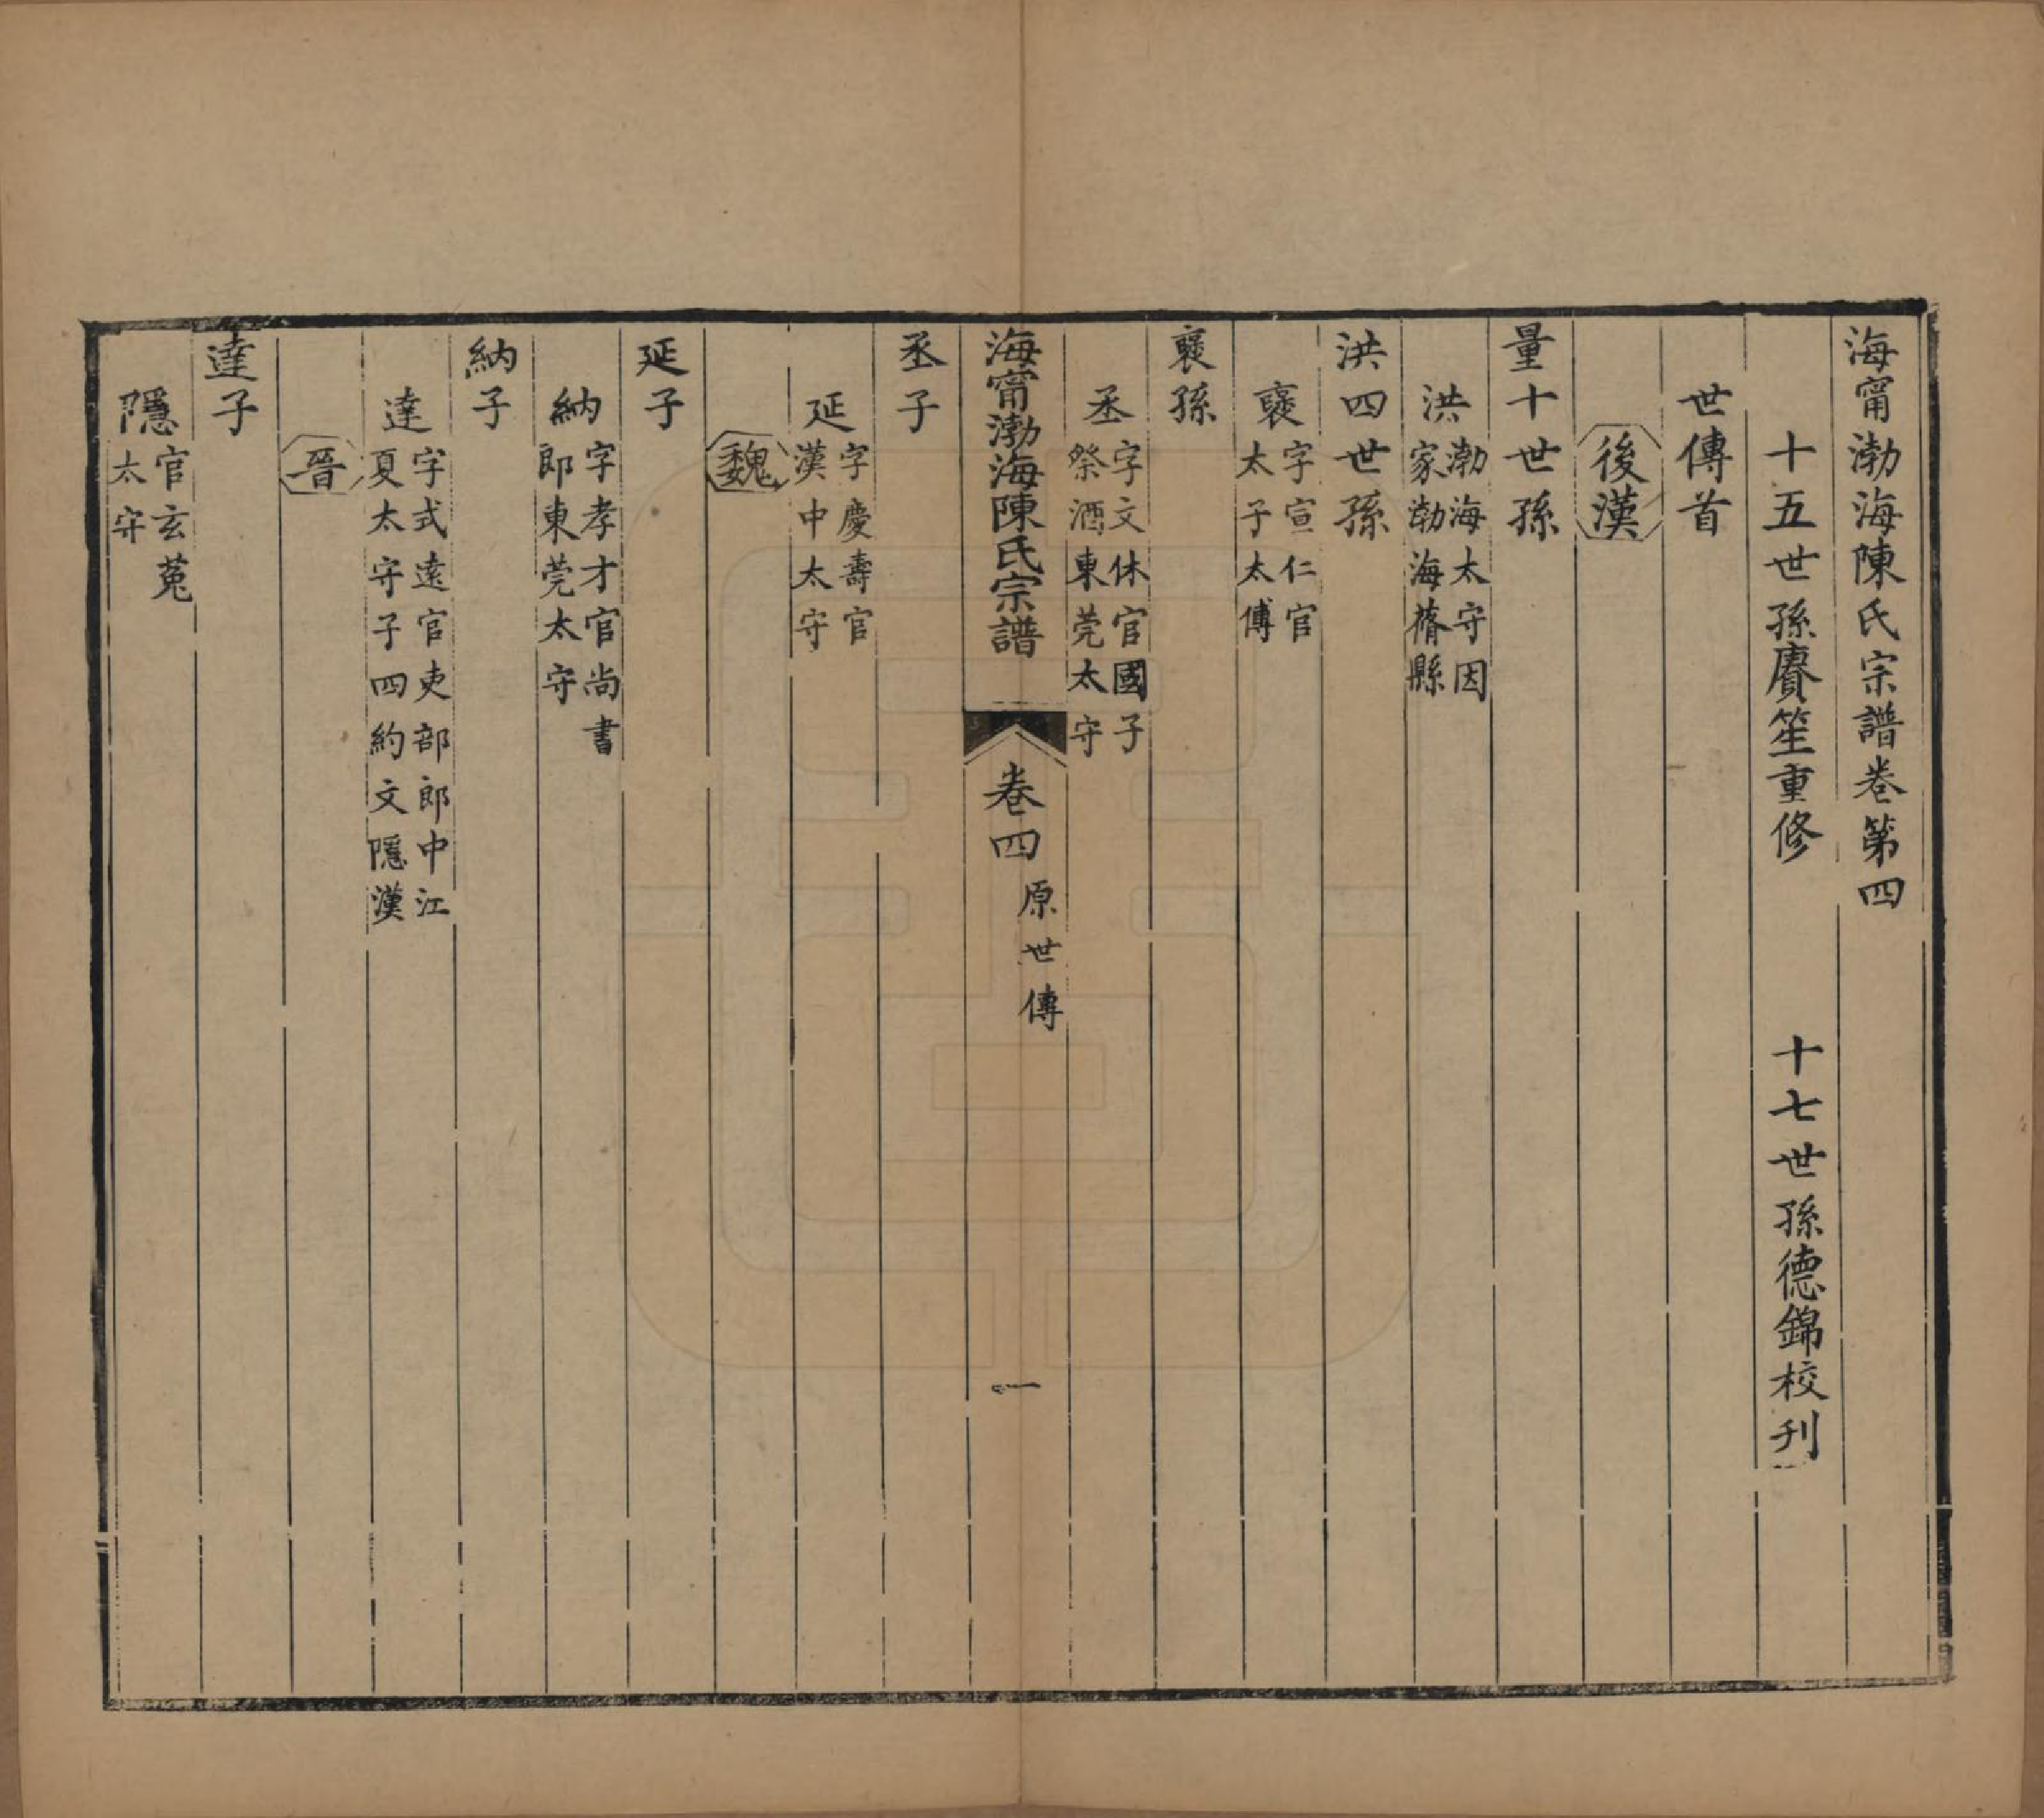 海甯渤海陳氏宗譜卷第四
十五世孫賡笙重修　十七世孫德錦校刊
世傳首
後漢
量十世孫
洪渤海太守因家渤海蓨縣
洪四世孫
襃字宣仁官太子太傅
襃孫
丞字文休官國子祭酒東莞太守
海甯渤海陳氏宗譜　卷四　原世傳　一
丞子
延字慶壽官漢中太守
魏
延子
納字孝才官尚書郎東莞太守
納子
達字式遠官吏部郎中江夏太守子四約文隱漢
晉
達子
隱官玄菟太守